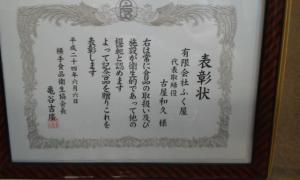 表彰状
有限会社ふく屋
代表取締役
古屋和久 様
右は常に食品の取扱い及び
施設が衛生的であって他の
模範と認めます
よって記念品を贈りこれを
表彰します
平成二十四年六月六日
横手食品衛生協会長
亀谷吉屋